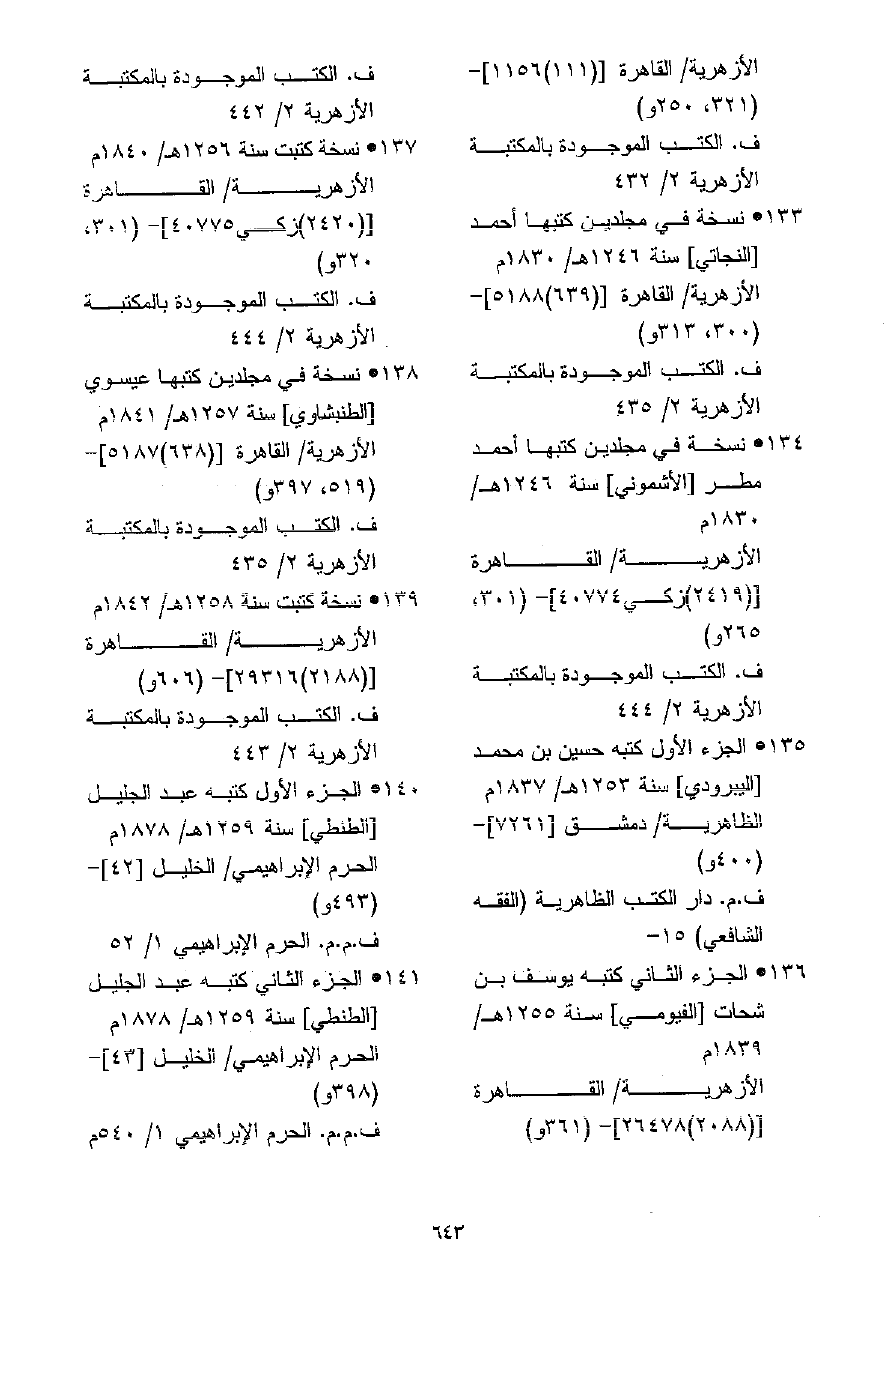 الأزهرية/ القاهرة [(١١١)١١٥٦]-
(٣٢١، ٢٥٠و)
ف. الكتب الموجودة بالمكتبة
الأزهرية ٢/ ٤٣٢
١٣٣• نسخة في مجلدين كتبها أحمد
[النجاتي] سنة ١٢٤٦هـ/ ١٨٣٠م
الأزهرية/ القاهرة [(٦٣٩)٥١٨٨]-
(٣٠٠، ٣١٣و)
ف. الكتب الموجودة بالمكتبة
الأزهرية ٢/ ٤٣٥
١٣٤• نسخة في مجلدين كتبها أحمد
مطر [الأشموني] سنة ١٢٤٦هـ/
١٨٣٠م
الأزهرية/ القاهرة
[(٢٤١٩)زكي٤٠٧٧٤]- (٣٠١،
٢٦٥و)
ف. الكتب الموجودة بالمكتبة
الأزهرية ٢/ ٤٤٤
١٣٥• الجزء الأول كتبه حسين بن محمد
[اليبرودي] سنة ١٢٥٣هـ/ ١٨٣٧م
الظاهرية/ دمشق [٧٢٦١]-
(٤٠٠و)
ف.م. دار الكتب الظاهرية (الفقه
الشافعي) ١٥-
١٣٦• الجزء الثاني كتبه يوسف بن
شحات [الفيومي] سنة ١٢٥٥هـ/
١٨٣٩م
الأزهرية/ القاهرة
[(٢٠٨٨)٢٦٤٧٨]- (٣٦١و)
ف. الكتب الموجودة بالمكتبة
الأزهرية ٢/ ٤٤٢
١٣٧• نسخة كتبت سنة ١٢٥٦هـ/ ١٨٤٠م
الأزهرية/ القاهرة
[(٢٤٢٠)زكي٤٠٧٧٥]- (٣٠١،
٣٢٠و)
ف. الكتب الموجودة بالمكتبة
الأزهرية ٢/ ٤٤٤
١٣٨• نسخة في مجلدين كتبها عيسوي
[الطنبشاوي] سنة ١٢٥٧هـ/ ١٨٤١م
الأزهرية/ القاهرة [(٦٣٨)٥١٨٧]-
(٥١٩، ٣٩٧و)
ف. الكتب الموجودة بالمكتبة
الأزهرية ٢/ ٤٣٥
١٣٩• نسخة كتبت سنة ١٢٥٨هـ/ ١٨٤٢م
الأزهرية/ القاهرة
[(٢١٨٨)٢٩٣١٦]- (٦٠٦و)
ف. الكتب الموجودة بالمكتبة
الأزهرية ٢/ ٤٤٣
١٤٠• الجزء الأول كتبه عبد الجليل
[الطنطي] سنة ١٢٥٩هـ/ ١٨٧٨م
الحرم الإبراهيمي/ الخليل [٤٢]-
(٤٩٣و)
ف.م.م. الحرم الإبراهيمي ١/ ٥٢
١٤١• الجزء الثاني كتبه عبد الجليل
[الطنطي] سنة ١٢٥٩هـ/ ١٨٧٨م
الحرم الإبراهيمي/ الخليل [٤٣]-
(٣٩٨و)
ف.م.م. الحرم الإبراهيمي ١/ ٥٤٠م
٦٤٣